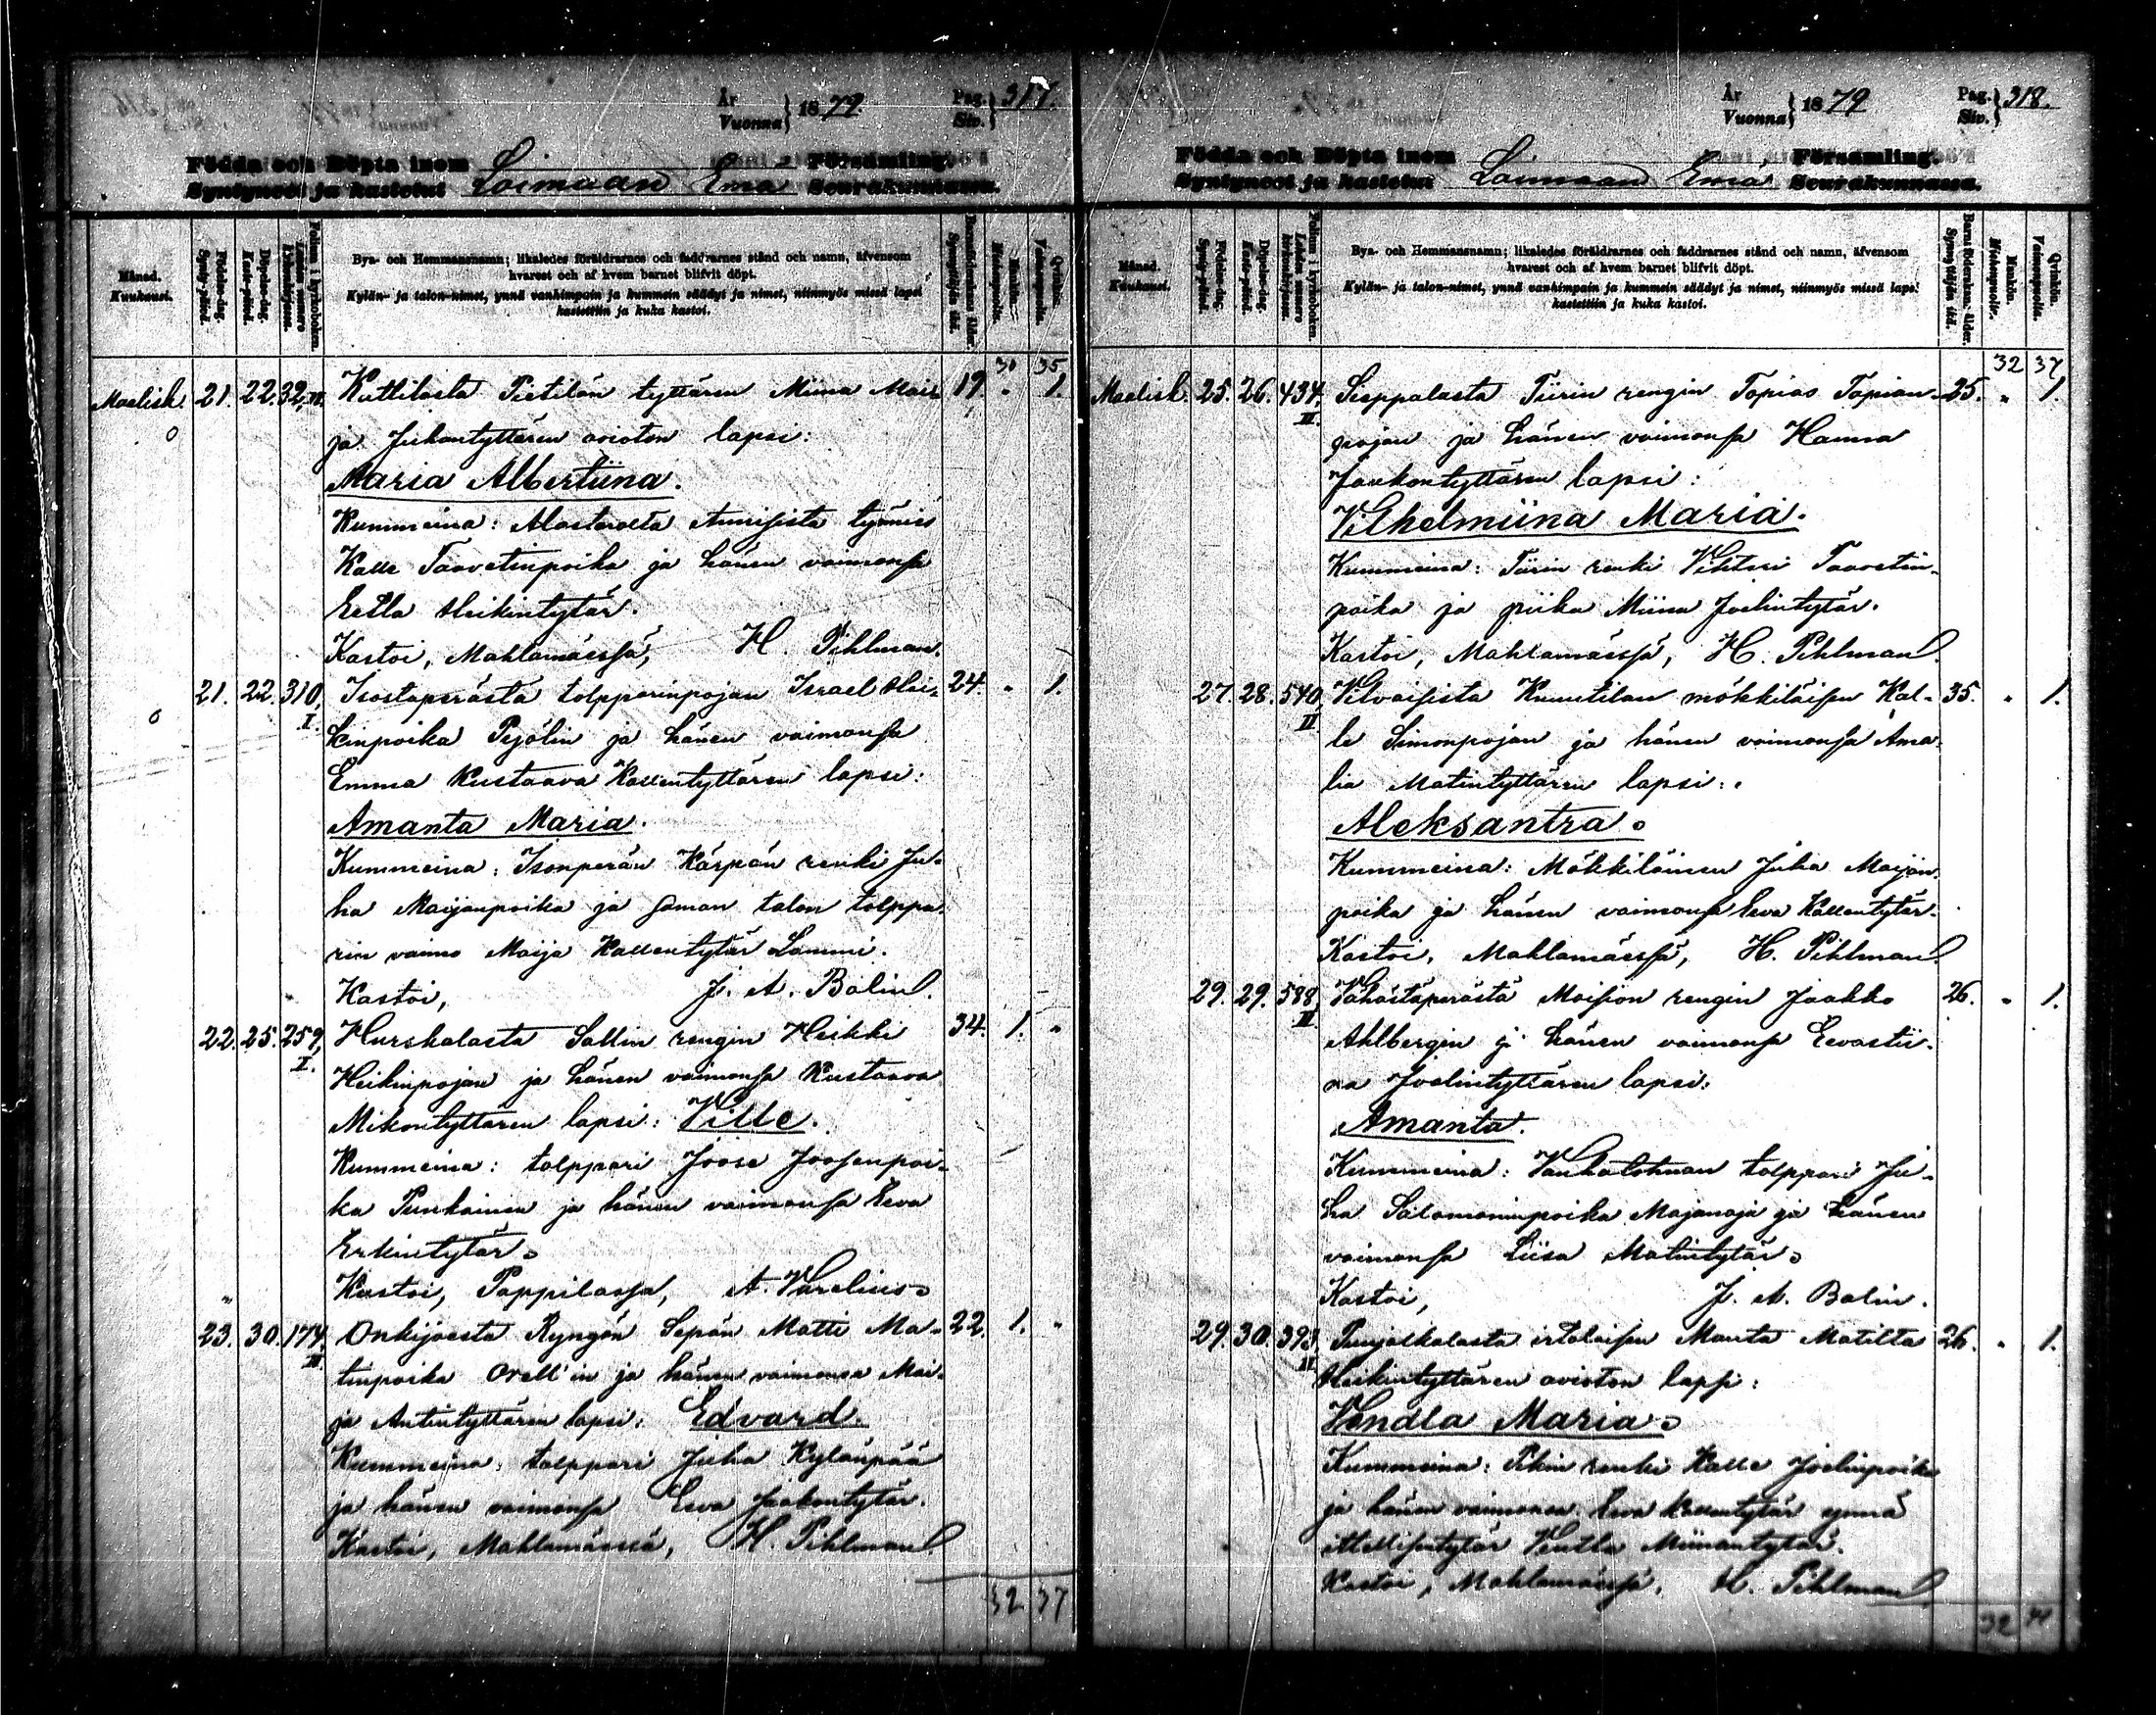 År
Vuonna } 1879.
Pag.
Siv. } 317.
Födda och Döpta inom
Syntyneet ja kastetut Loimaan Emä Församling.
Seurakunnassa.
Månad.
Kuukausi.
Födelse-dag.
Synty-päivä.
Döpelse-dag.
Kaste-päivä.
Folium i kyrkoboken.
Lehden numero kirkonkirjassa.
Bya- och Hemmansnamn; likaledes föräldrarnes och faddrarnes stånd och namn, äfvensom
hvarest och af hvem barnet blifvit döpt.
Kylän- ja talon-nimet, ynnä vanhimpain ja kummein säädyt ja nimet, niinmyös missä lapsi
kastettiin ja kuka kastoi.
Barnaföderskans ålder.
Synnyttäjän ikä.
Mankön.
Miehenpuolia.
Qvinkön.
Vaimonpuolia.
30 35
Maalisk. 21. 22. 32, III. Kuttilasta Pietilän tyttären Miina Mai- 19. " 1.
ja Juhontyttären avioton lapsi:
Maria Albertiina.
Kummeina: Alastarolta Annisista työmies
Kalle Taavetinpoika ja hänen vaimonsa
Eetla Heikintytär.
Kastoi, Mahlamäessä, H. Pihlman.
21. 22. 310, I. Isostaperästä tolpparinpojan Israel Hei- 24. " 1.
kinpoika Pejölin ja hänen vaimonsa
Emma Kustaava Kallentyttären lapsi:
Amanta Maria.
Kummeina: Isonperän Kärpän renki Ju-
ha Maijanpoika ja saman talon tolppa-
rin vaimo Maija Kallentytär Lammi.
Kastoi, J. A. Bolin.
22. 25. 259, I. Hurskalasta Sallin rengin Heikki 34. 1. "
Heikinpojan ja hänen vaimonsa Kustaava
Mikontyttären lapsi: Ville.
Kummeina: tolppari Joose Joosenpoi-
ka Punkainen ja hänen vaimonsa Eeva
Erkintytär.
Kastoi, Pappilassa, A. Varelius
23. 30. 174, III. Onkijoesta Ryngön Sepän Matti Ma- 22. 1. "
tinpoika Orell'in ja hänen vaimonsa Mai-
ja Antintyttären lapsi: Edvard.
Kummeina: tolppari Juha Kylänpää
ja hänen vaimonsa Eeva Jaakontytär.
Kastoi, Mahlamäessä, H. Pihlman
32 37
År
Vuonna } 1879
Pag.
Siv. } 318.
Födda och Döpta inom
Syntyneet ja kastetut Loimaan Emä Församling.
Seurakunnassa.
Månad.
Kuukausi.
Födelse-dag.
Synty-päivä.
Döpelse-dag.
Kaste-päivä.
Folium i kyrkoboken.
Lehden numero kirkonkirjassa.
Bya- och Hemmansnamn; likaledes föräldrarnes och faddrarnes stånd och namn, äfvensom
hvarest och af hvem barnet blifvit döpt.
Kylän- ja talon-nimet, ynnä vanhimpain ja kummein säädyt ja nimet, niinmyös missä lapsi
kastettiin ja kuka kastoi.
Barnaföderskans ålder.
Synnyttäjän ikä.
Mankön.
Miehenpuolia.
Qvinkön.
Vaimonpuolia.
32 37
Maalisk. 25. 26. 434, III. Seppälästa Tiirin rengin Topias Topian- 25. " 1.
pojan ja hänen vaimonsa Hanna
Jaakontyttären lapsi:
Vilhelmiina Maria.
Kummeina: Tiirin renki Vihtori Taavetin-
poika ja piika Miina Joelintytär.
Kastoi, Mahlamäessä, H. Pihlman.
27. 28. 540, II Vilvaisista Knuutilan mökkiläisen Kal- 35. " 1.
le Simonpojan ja hänen vaimonsa Ama-
lia Matintyttären lapsi:
Aleksantra.
Kummeina: Mökkiläinen Juha Maijan-
poika ja hänen vaimonsa Eeva Kallentytär.
Kastoi, Mahlamäessä, H. Pihlman
29. 29. 588, II Vähästäperästä Moision rengin Jaakko 26. " 1.
Ahlbergin ja hänen vaimonsa Eevastii-
na Joelintyttären lapsi:
Amanta.
Kummeina: Vanhalohman tolppari Ju-
ha Salomoninpoika Majanoja ja hänen
vaimonsa Liisa Matintytär.
Kastoi, J. A. Bolin.
29. 30. 393, II Puujalkalasta irtolaisen Manta Matilta 26. " 1.
Heikintyttären avioton lapsi:
Vendla Maria.
Kummeina: Pikin renki Kalle Joelinpoika
ja hänen vaimonsa Eeva Kallentytär ynnä
itsellisentytär Ventla Miinantytär.
Kastoi, Mahlamäessä, H. Pihlman
32